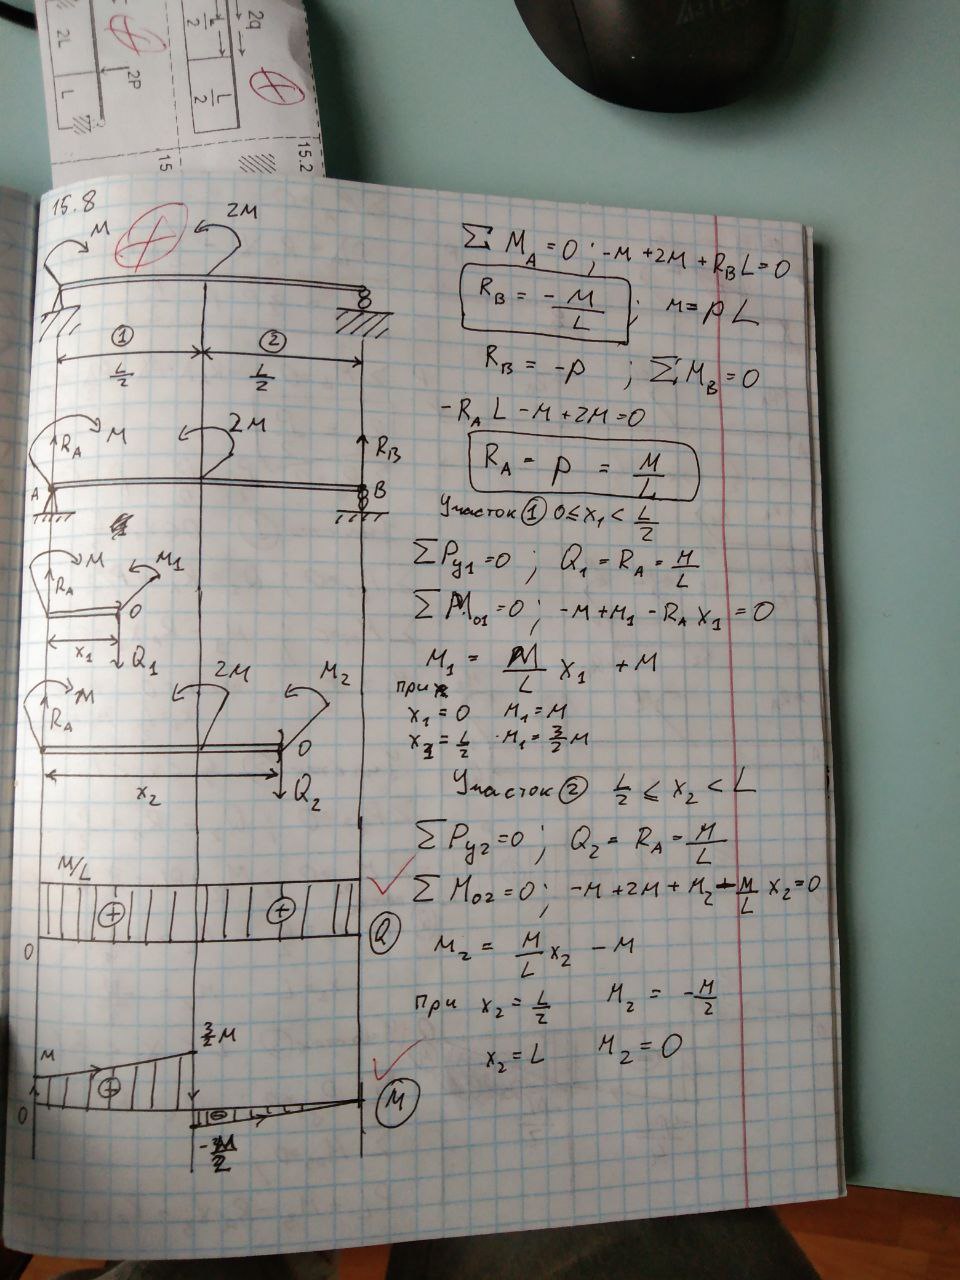 2L
L
2P
15
L/2
L/2
2q
15.2
15.8
M
2M
① ②
L/2 L/2
R_A M 2M R_B
A B
M M₁
R_A O
x₁ Q₁
M 2M M₂
R_A O
x₂ Q₂
M/L
+ +
0 Q
M 3/2 M
+
0 M
-M/2
Σ M_A = 0 ; -M + 2M + R_B L = 0
R_B = - M/L ; M = P L
R_B = -P ; Σ M_B = 0
- R_A L - M + 2M = 0
R_A = P = M/L
Участок ① 0 ≤ x₁ < L/2
Σ P_y1 = 0 ; Q₁ = R_A = M/L
Σ M_01 = 0 ; -M + M₁ - R_A x₁ = 0
M₁ = M/L x₁ + M
при
x₁ = 0 M₁ = M
x₁ = L/2 M₁ = 3/2 M
Участок ② L/2 ≤ x₂ < L
Σ P_y2 = 0 ; Q₂ = R_A = M/L
Σ M_02 = 0 ; -M + 2M + M₂ - M/L x₂ = 0
M₂ = M/L x₂ - M
при x₂ = L/2 M₂ = - M/2
x₂ = L M₂ = 0